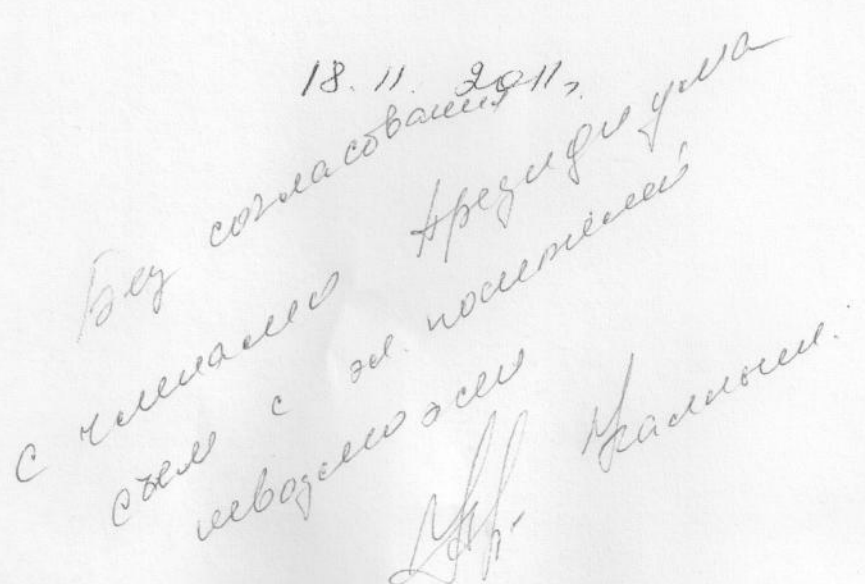 18. 11. 2011г
Без согласования
с членами Президиума
съем с эл. носителей
невозможен